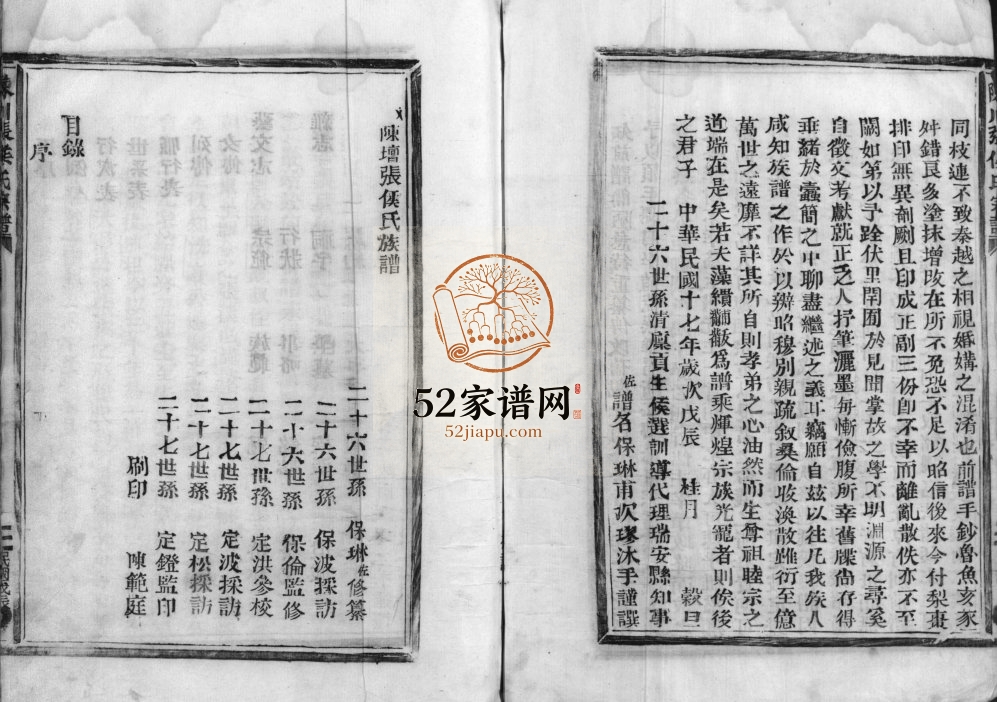 同枝連不致秦越之相視婚媾之混淆也前譜手鈔魯魚亥豕
舛錯良多塗抹增改在所不免恐不足以昭信後來今付梨棗
排印無異剞劂且印成正副三份卽不幸而離亂散佚亦不至
闕如第以予跧伏里閈囿於見聞掌故之學不明淵源之尋奚
自徵文考獻就正乏人抒筆灑墨每慚儉腹所幸舊牒尚存得
垂緒於蠹簡之中聊盡繼述之義耳竊願自兹以往凡我族人
咸知族譜之作於以辨昭穆別親疏叙彝倫收渙散雖衍至億
萬世之遠靡不詳其所自則孝弟之心油然而生尊祖睦宗之
道端在是矣若夫藻繢黼黻爲譜乘輝煌宗族光寵者則俟後
之君子 中華民國十七年歲次戊辰 桂月 穀旦
二十六世孫清廩貢生候選訓導代理瑞安縣知事
佐 譜名保琳甫次璆沐手謹譔
陳壇張侯氏族譜
二十六世孫 保琳佐修纂
二十六世孫 保波採訪
二十六世孫 保倫監修
二十七世孫 定洪參校
二十七世孫 定波採訪
二十七世孫 定松採訪
二十七世孫 定鐙監印
刷印 陳範庭
目錄
序
52家谱网
52jiapu.com